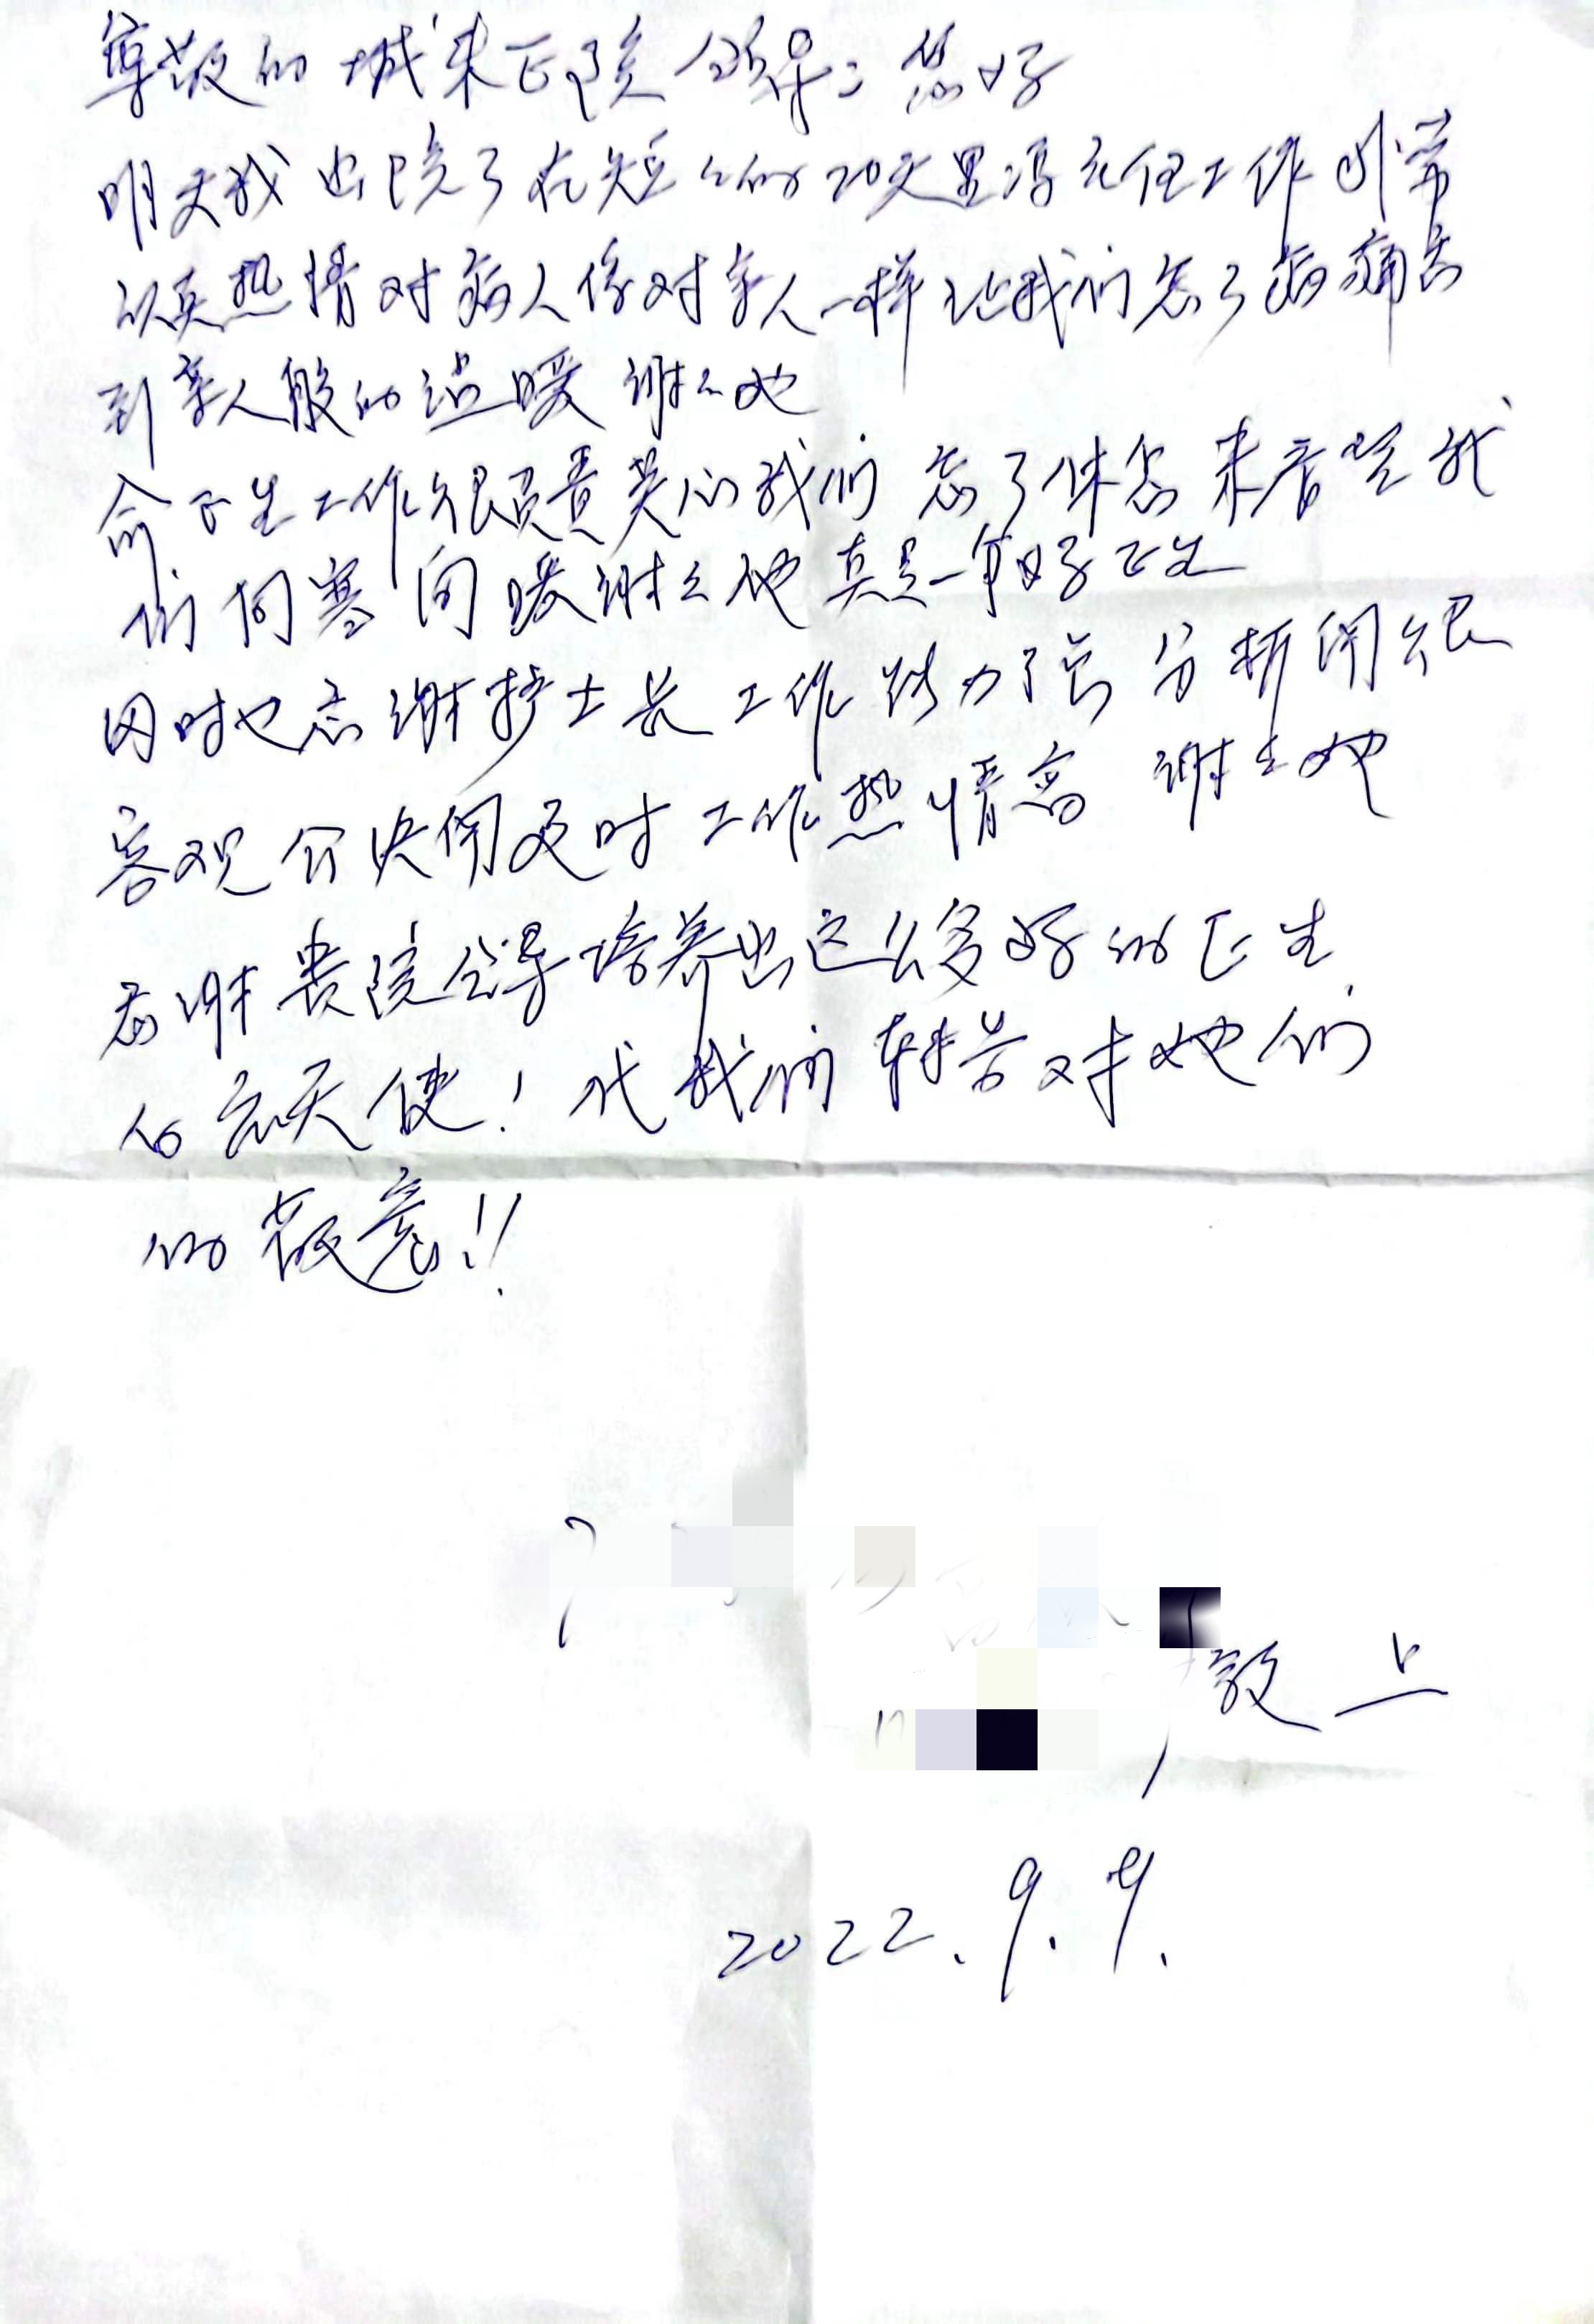 尊敬的城东医院领导：您好
明天我出院了在短々的20天里冯主任工作非常
认真热情对病人像对亲人一样让我们忘了病痛感
到亲人般的温暖 谢々她
俞医生工作很负责关心我们 忘了休息来看望我
们问寒问暖谢々他真是一个好医生
同时也感谢护士长工作能力强 分析问题很
客观 解决问题及时 工作热情高 谢々她
感谢贵院领导培养出这么多好的医生
白衣天使！代我们转告对她们
的敬意！！
敬上
2022.9.9.